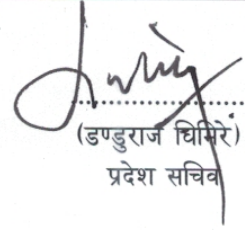 (डण्डुराज घिमिरे)
प्रदेश सचिव